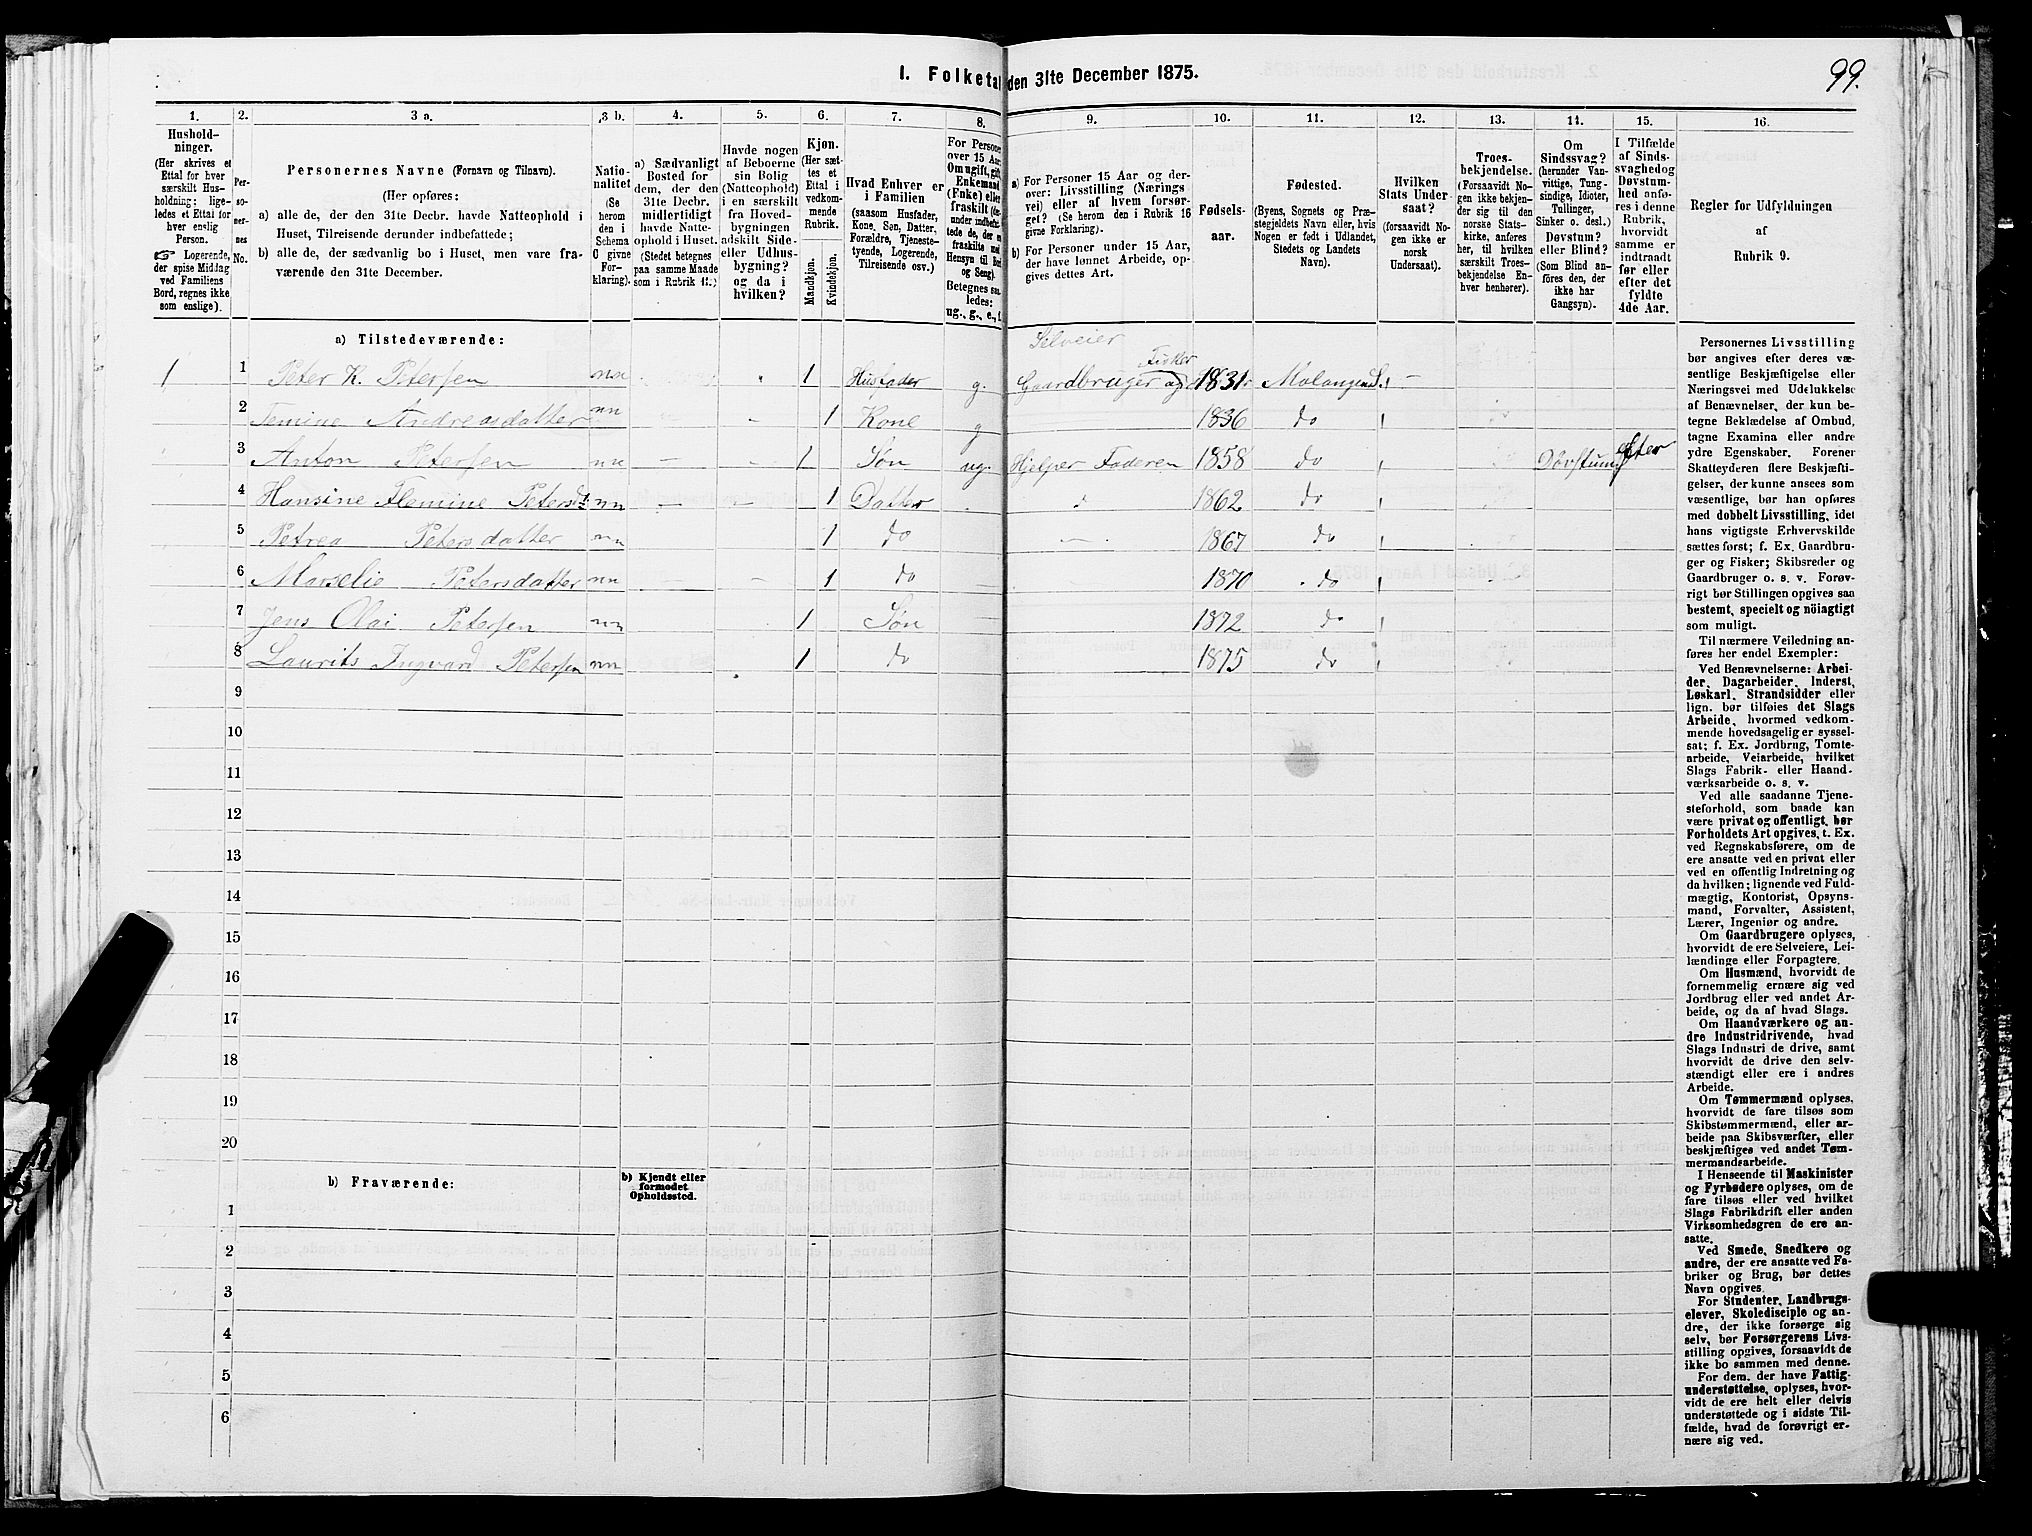 99.
I. Folketal den 31te December 1875.
1. 2. 3 a. 3 b. 4. 5. 6. 7. 8. 9. 10. 11. 12. 13. 14. 15. 16.
Hushold-
ninger.
(Her skrives et
Ettal for hver
særskilt Hus-
holdning; lige-
ledes et Ettal for
hver enslig
Person.
☞ Logerende,
der spise Middag
ved Familiens
Bord, regnes ikke
som enslige).
Per-
so-
ner-
nes
No.
Personernes Navne (Fornavn og Tilnavn).
(Her opføres:
a) alle de, der den 31te Decbr. havde Natteophold i
Huset, Tilreisende derunder indbefattede;
b) alle de, der sædvanlig bo i Huset, men vare fra-
værende den 31te December.
Natio-
nalitet
(Se
herom
den i
Schema
O givne
For-
klaring).
a) Sædvanligt
Bosted for
dem, der den
31te Decbr.
midlertidigt
havde Natte-
ophold i Huset.
(Stedet betegnes
paa samme Maade
som i Rubrik 11.)
Havde nogen
af Beboerne
sin Bolig
(Natteophold)
i en særskilt
fra Hoved-
bygningen
adskilt Side-
eller Udhus-
bygning?
og da i
hvilken?
Kjøn.
(Her sæt-
tes et
Ettal i
vedkom-
mende
Rubrik.
Mandkjøn.
Kvindekjøn.
Hvad Enhver er
i Familien
(saasom Husfader,
Kone, Søn, Datter,
Forældre, Tjeneste-
tyende, Logerende,
Tilreisende osv.)
For Personer
over 15 Aar:
Om ugift, gift,
Enkemand
(Enke) eller
fraskilt
Betegnes saa-
ledes:
ug., g., e., f.
a) For Personer 15 Aar og der-
over: Livsstilling (Nærings
vei) eller af hvem forsør-
get? (Se herom den i Rubrik 16
givne Forklaring).
b) For Personer under 15 Aar,
der have lønnet Arbeide, op-
gives dettes Art.
Fødsels-
aar.
Fødested.
(Byens, Sognets og Præ-
stegjeldets Navn eller, hvis
Nogen er født i Udlandet,
Stedets og Landets
Navn).
Hvilken
Stats Under-
saat?
(forsaavidt No-
gen ikke er
norsk
Undersaat).
Troes-
bekjendelse.
(Forsaavidt No-
gen ikke bekjen-
der sig til den
norske Stats-
kirke, anføres
her, til hvilken
særskilt Troes-
bekjendelse En-
hver henhører).
Om
Sindssvag?
(herunder Van-
vittige, Tung-
sindige, Idioter,
Tullinger,
Sinker o. desl.)
Døvstum?
eller Blind?
(Som Blind an-
føres den, der
ikke har
Gangsyn).
I Tilfælde
af Sinds-
svaghed og
Døvstum-
hed anfø-
res i denne
Rubrik,
hvorvidt
samme er
indtraadt
før eller
efter det
fyldte
4de Aar.
Regler for Udfyldningen
af
Rubrik 9.
a) Tilstedeværende:
Selveier
Fisker
1 1 Peter K. Petersen nn 1 Husfader g. Gaardbruger og 1831 Malangen S.
2 Temine Andreasdatter nn 1 Kone g 1836 do
3 Anton Petersen nn 1 Søn ug. Hjelper Faderen 1858 do Døvstum efter
4 Hansine Flemine Petersd. nn 1 Datter 1862 do
5 Petrea Petersdatter nn 1 do 1867 do
6 Marselie Petersdatter nn 1 do 1870 do
7 Jens Olai Petersen nn 1 Søn 1872 do
8 Laurits Ingvard Petersen nn 1 do 1875 do
9
10
11
12
13
14
15
16
17
18
19
20
b) Fraværende:
b) Kjendt eller
formodet
Opholdssted.
1
2
3
4
5
6
Personernes Livsstilling
bør angives efter deres væ-
sentlige Beskjæftigelse eller
Næringsvei med Udelukkelse
af Benævnelser, der kun be-
tegne Beklædelse af Ombud,
tagne Examina eller andre
ydre Egenskaber. Forener
Skatteyderen flere Beskjæfti-
gelser, der kunne ansees som
væsentlige, bør han opføres
med dobbelt Livsstilling, idet
hans vigtigste Erhvervskilde
sættes først; f. Ex. Gaardbru-
ger og Fisker; Skibsreder og
Gaardbruger o. s. v. Forøv-
rigt bør Stillingen opgives saa
bestemt, specielt og nöiagtigt
som muligt.
Til nærmere Veiledning an-
føres her endel Exempler:
Ved Benævnelserne: Arbei-
der, Dagarbeider, Inderst,
Løskarl, Strandsidder eller
lign. bør tilføies det Slags
Arbeide, hvormed vedkom-
mende hovedsagelig er syssel-
sat; f. Ex. Jordbrug, Tomte-
arbeide, Veiarbeide, hvilket
Slags Fabrik- eller Haand-
værksarbeide o. s. v.
Ved alle saadanne Tjene-
steforhold, som baade kan
være privat og offentligt, bør
Forholdets Art opgives, t. Ex.
ved Regnskabsførere, om de
ere ansatte ved en privat eller
ved en offentlig Indretning og
da hvilken; lignende ved Fuld-
mægtig, Kontorist, Opsyns-
mand, Forvalter, Assistent,
Lærer, Ingeniør og andre.
Om Gaardbrugere oplyses,
hvorvidt de ere Selveiere, Lei-
lændinge eller Forpagtere.
Om Husmænd, hvorvidt de
fornemmelig ernære sig ved
Jordbrug eller ved andet Ar-
beide, og da af hvad Slags.
Om Haandværkere og an-
dre Industridrivende, hvad
Slags Industri de drive, samt
hvorvidt de drive den selv-
stændigt eller ere i andres
Arbeide.
Om Tømmermænd oplyses,
hvorvidt de fare tilsøs som
Skibstømmermænd, eller ar-
beide paa Skibsværfter, eller
beskjæftiges ved andet Tøm-
mermandsarbeide.
I Henseende til Maskinister
og Fyrbødere oplyses, om de
fare tilsøs eller ved hvilket
Slags Fabrikdrift eller anden
Virksomhedsgren de ere an-
satte.
Ved Smede, Snedkere og
andre, der ere ansatte ved Fa-
briker og Brug, bør dettes
Navn opgives.
For Studenter, Landbrugs-
elever, Skoledisciple og an-
dre, der ikke forsørge sig
selv, bør Forsørgerens Livs-
stilling opgives, forsaavidt de
ikke bo sammen med denne.
For dem, der have Fattig-
understøttelse, oplyses, hvor-
vidt de ere helt eller delvis
understøttede og i sidste Til-
fælde, hvad de forøvrigt er-
nære sig ved.